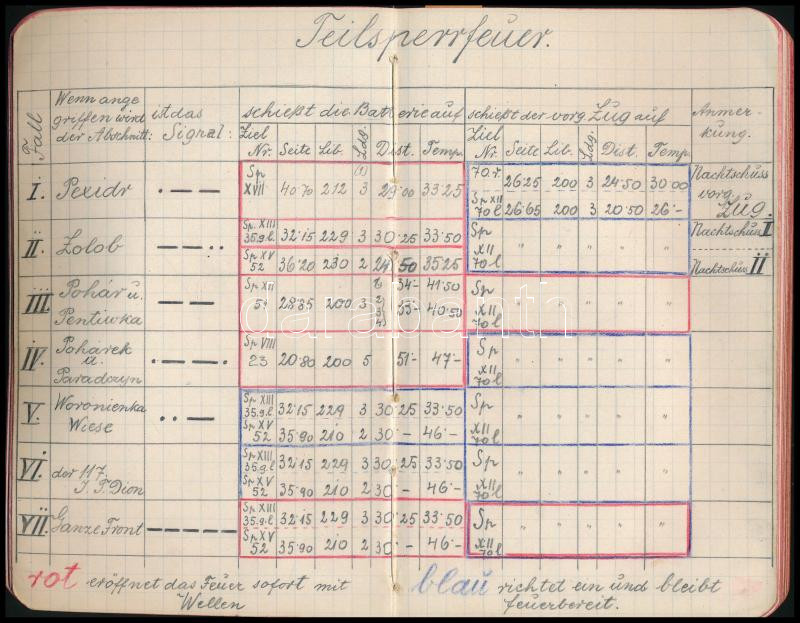 Teilsperrfeuer.
Fall | Wenn ange griffen wird der Abschnitt: | ist das Signal: | schießt die Batterie auf | schießt der vorg. Zug auf | Anmer- kung.
Ziel Nr. | Seite | Lib. | Ldg. | Dist. | Temp. | Ziel Nr. | Seite | Lib. | Ldg. | Dist. | Temp.
I. Pexidr · — — Sp XVII 40·70 212 3 29·00 33·25 70.r. 26·25 200 3 24·50 30·00 Nachtschuss vorg. Zug.
Sp XII 70 l 26·65 200 3 20·50 26·-
II. Zolob — — · — Sp. XIII 35.g.l. 32·15 229 3 30·25 33·50 Sp XII 70·l " " " " " Nachtschuss I
Sp XV 52 36·20 230 2 24·50 35·25 Nachtschuss II
III. Pohár u. Pentiwka — — Sp XII 28·85 200 3 34- 41·50 Sp XII 70 l " " " " "
40·50
IV. Pohárek u. Paradczyn · — — · Sp VIII 23 20·80 200 5 51·- 47·- Sp XII 70 l " " " " "
V. Woronienka Wiese · · — Sp XIII 35.g.l 32·15 229 3 30·25 33·50 Sp XII 70 l " " " " "
Sp XV 52 35·90 210 2 30·- 46·-
VI. der 117. I. T. Dion Sp XIII 35.g.l 32·15 229 3 30·25 33·50 Sp XII 70 l " " " " "
Sp XV 52 35·90 210 2 30·- 46·-
VII. Ganze Front — — — — — Sp XIII 35.g.l 32·15 229 3 30·25 33·50 Sp XII 70 l " " " " "
Sp XV 52 35·90 210 2 30·- 46·-
rot eröffnet das Feuer sofort mit Wellen
blau richtet ein und bleibt feuerbereit.
darabanth